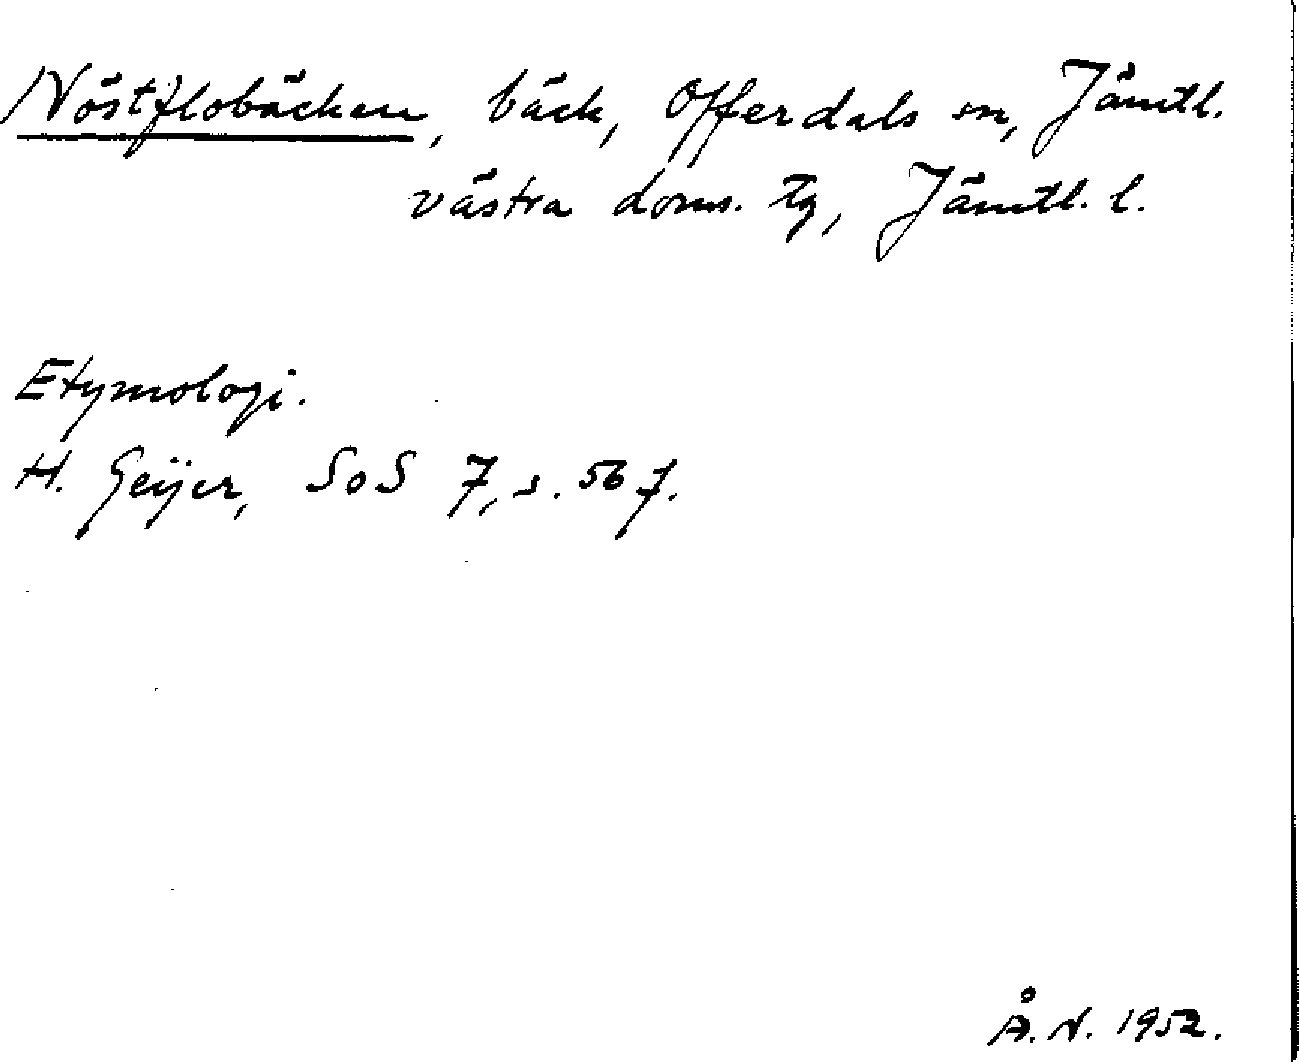 Nöstflobäcken, bäck, Offerdals sn, Jämtl.
västra doms. tg, Jämtl. l.
Etymologi.
H. Geijer, SoS 7, s. 56 f.
Å. N. 1952.